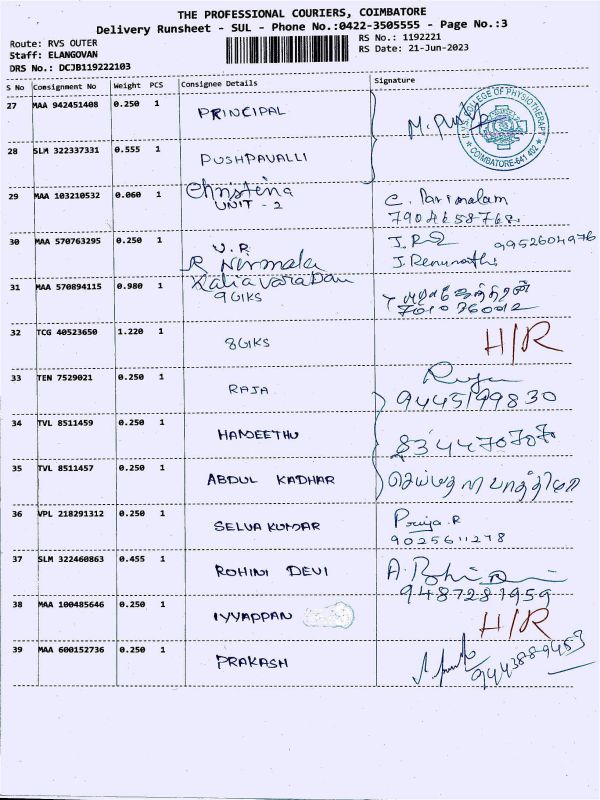 THE PROFESSIONAL COURIERS, COIMBATORE
Delivery Runsheet - SUL - Phone No.:0422-3505555 - Page No.:3
Route: RVS OUTER
Staff: ELANGOVAN
DRS No.: DCJB119222103
RS No.: 1192221
RS Date: 21-Jun-2023
S No Consignment No Weight PCS Consignee Details Signature
27 MAA 942451408 0.250 1 PRINCIPAL
RVS COLLEGE OF PHYSIOTHERAPY
COIMBATORE-641 402
28 SLM 322337331 0.555 1 PUSHPAVALLI
29 MAA 103210532 0.060 1 Christina
UNIT - 2
C. Parimalam
30 MAA 570763295 0.250 1 V.P.
R Nirmala
9952604976
31 MAA 570894115 0.980 1 Kaliavaradan
9GIKS
32 TCG 40523650 1.220 1 8GIKS H/R
33 TEN 7529021 0.250 1 RAJA Raja
9445199830
34 TVL 8511459 0.250 1 HAMEETHU 8344470707
35 TVL 8511457 0.250 1 ABDUL KADHAR
36 VPL 218291312 0.250 1 SELVA KUMAR Priya.R
9025611278
37 SLM 322460863 0.455 1 ROHINI DEVI A. Rohini
9487281959
38 MAA 100485646 0.250 1 IYYAPPAN H/R
39 MAA 600152736 0.250 1 PRAKASH
9443889453